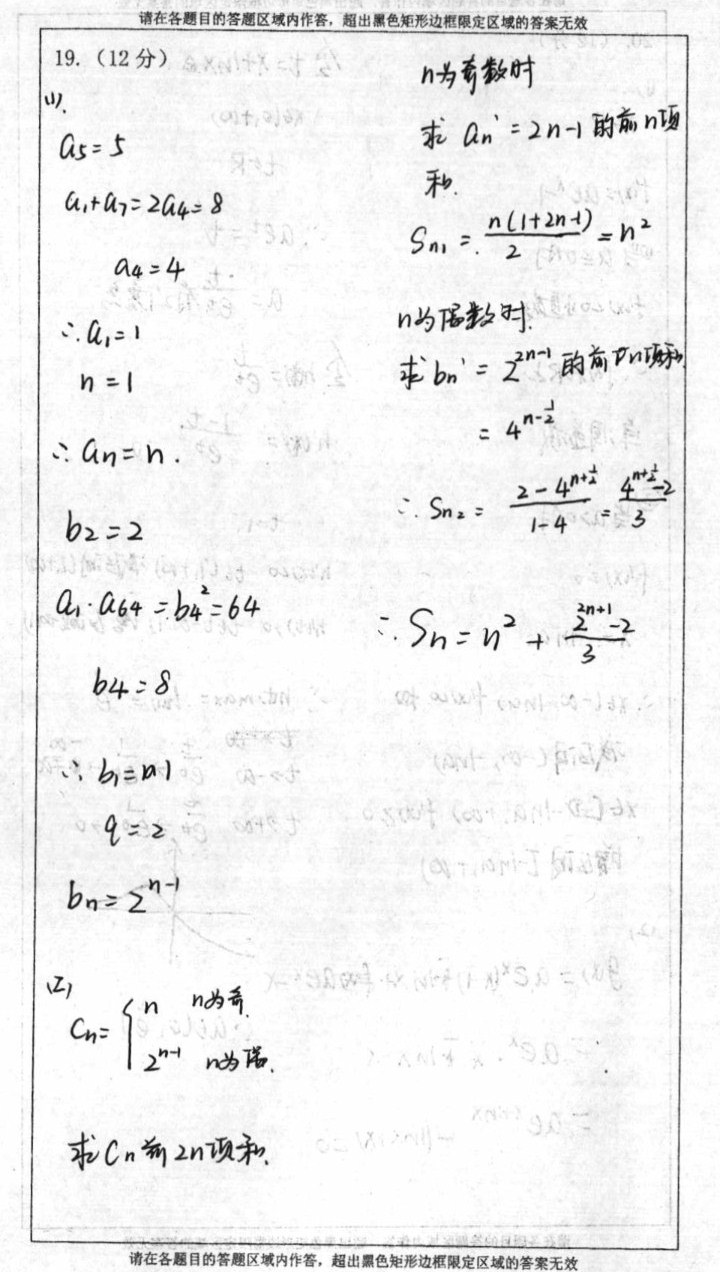 请在各题目的答题区域内作答，超出黑色矩形边框限定区域的答案无效
19.（12分）
(1).
a₅=5
a₁+a₇=2a₄=8
a₄=4
∴a₁=1
n=1
∴aₙ=n.
b₂=2
a₁·a₆₄=b₄²=64
b₄=8
∴b₁=1
q=2
bₙ=2ⁿ⁻¹
(2)
Cₙ={n n为奇.
2ⁿ⁻¹ n为偶.
求Cₙ前2n项和.
n为奇数时
求 aₙ'=2n-1 的前n项
和.
Sₙ₁=n(1+2n-1)/2=n²
n为偶数时.
求bₙ'=2^(2n-1) 的前n项和
=4^(n-1/2)
∴Sₙ₂=(2-4^(n+1/2))/(1-4)=(4^(n+1/2)-2)/3
∴Sₙ=n²+(2^(2n+1)-2)/3
请在各题目的答题区域内作答，超出黑色矩形边框限定区域的答案无效